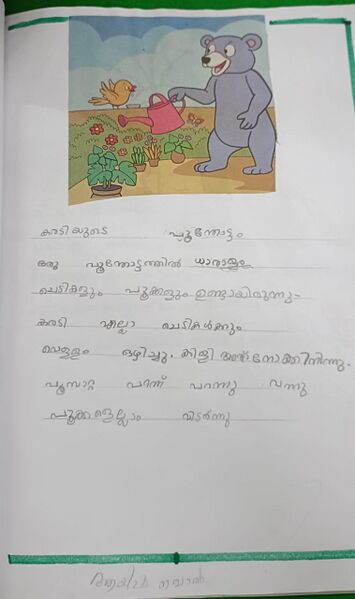 കരടിയുടെ പൂന്തോട്ടം
ഒരു പൂന്തോട്ടത്തിൽ ധാരാളം
ചെടികളും പൂക്കളും ഉണ്ടായിരുന്നു.
കരടി എല്ലാ ചെടികൾക്കും
വെള്ളം ഒഴിച്ചു. കിളി അത് നോക്കിനിന്നു.
പൂമ്പാറ്റ പറന്ന് പറന്നു വന്നു
പൂക്കളെല്ലാം വിടർന്നു